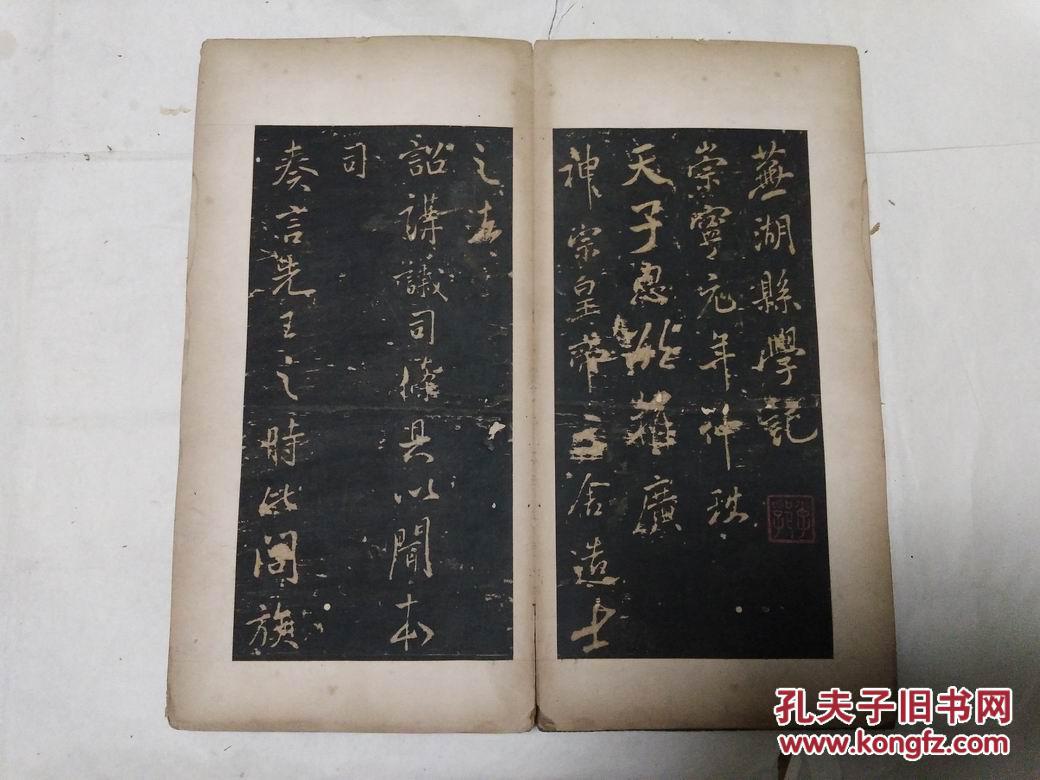 蕪湖縣學記
崇寧元年秋
天子惠然推廣
神宗皇帝三舍造士
之法
詔講議司條具以聞本
司
奏言先王之時比閭族
孔夫子旧书网
www.kongfz.com